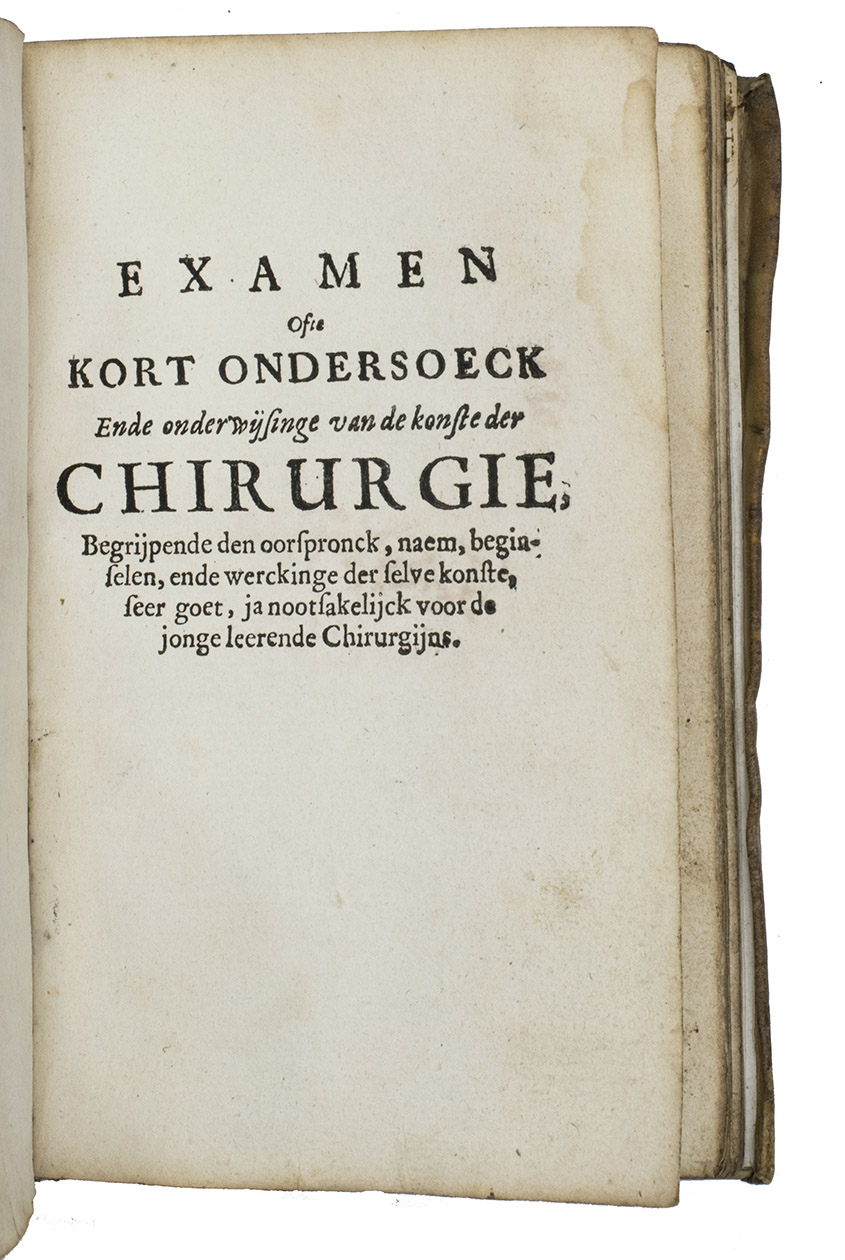 EXAMEN
Ofte
KORT ONDERSOECK
Ende onderwijſinge van de konſte der
CHIRURGIE,
Begrijpende den oorſpronck, naem, begin-
ſelen, ende werckinge der ſelve konſte,
ſeer goet, ja nootſakelijck voor de
jonge leerende Chirurgijns.